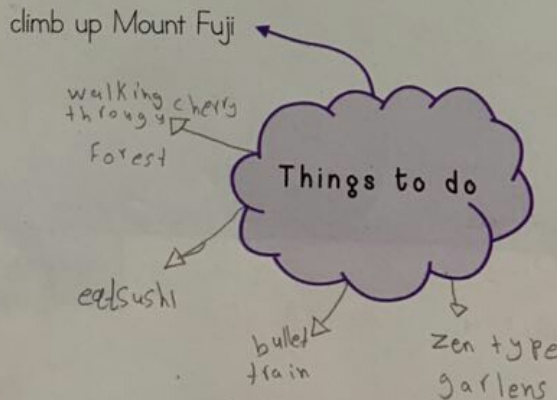 climb up Mount Fuji
walking cherry
througy
forest
Things to do
eatsushi
bullet
train
zen type
garlens